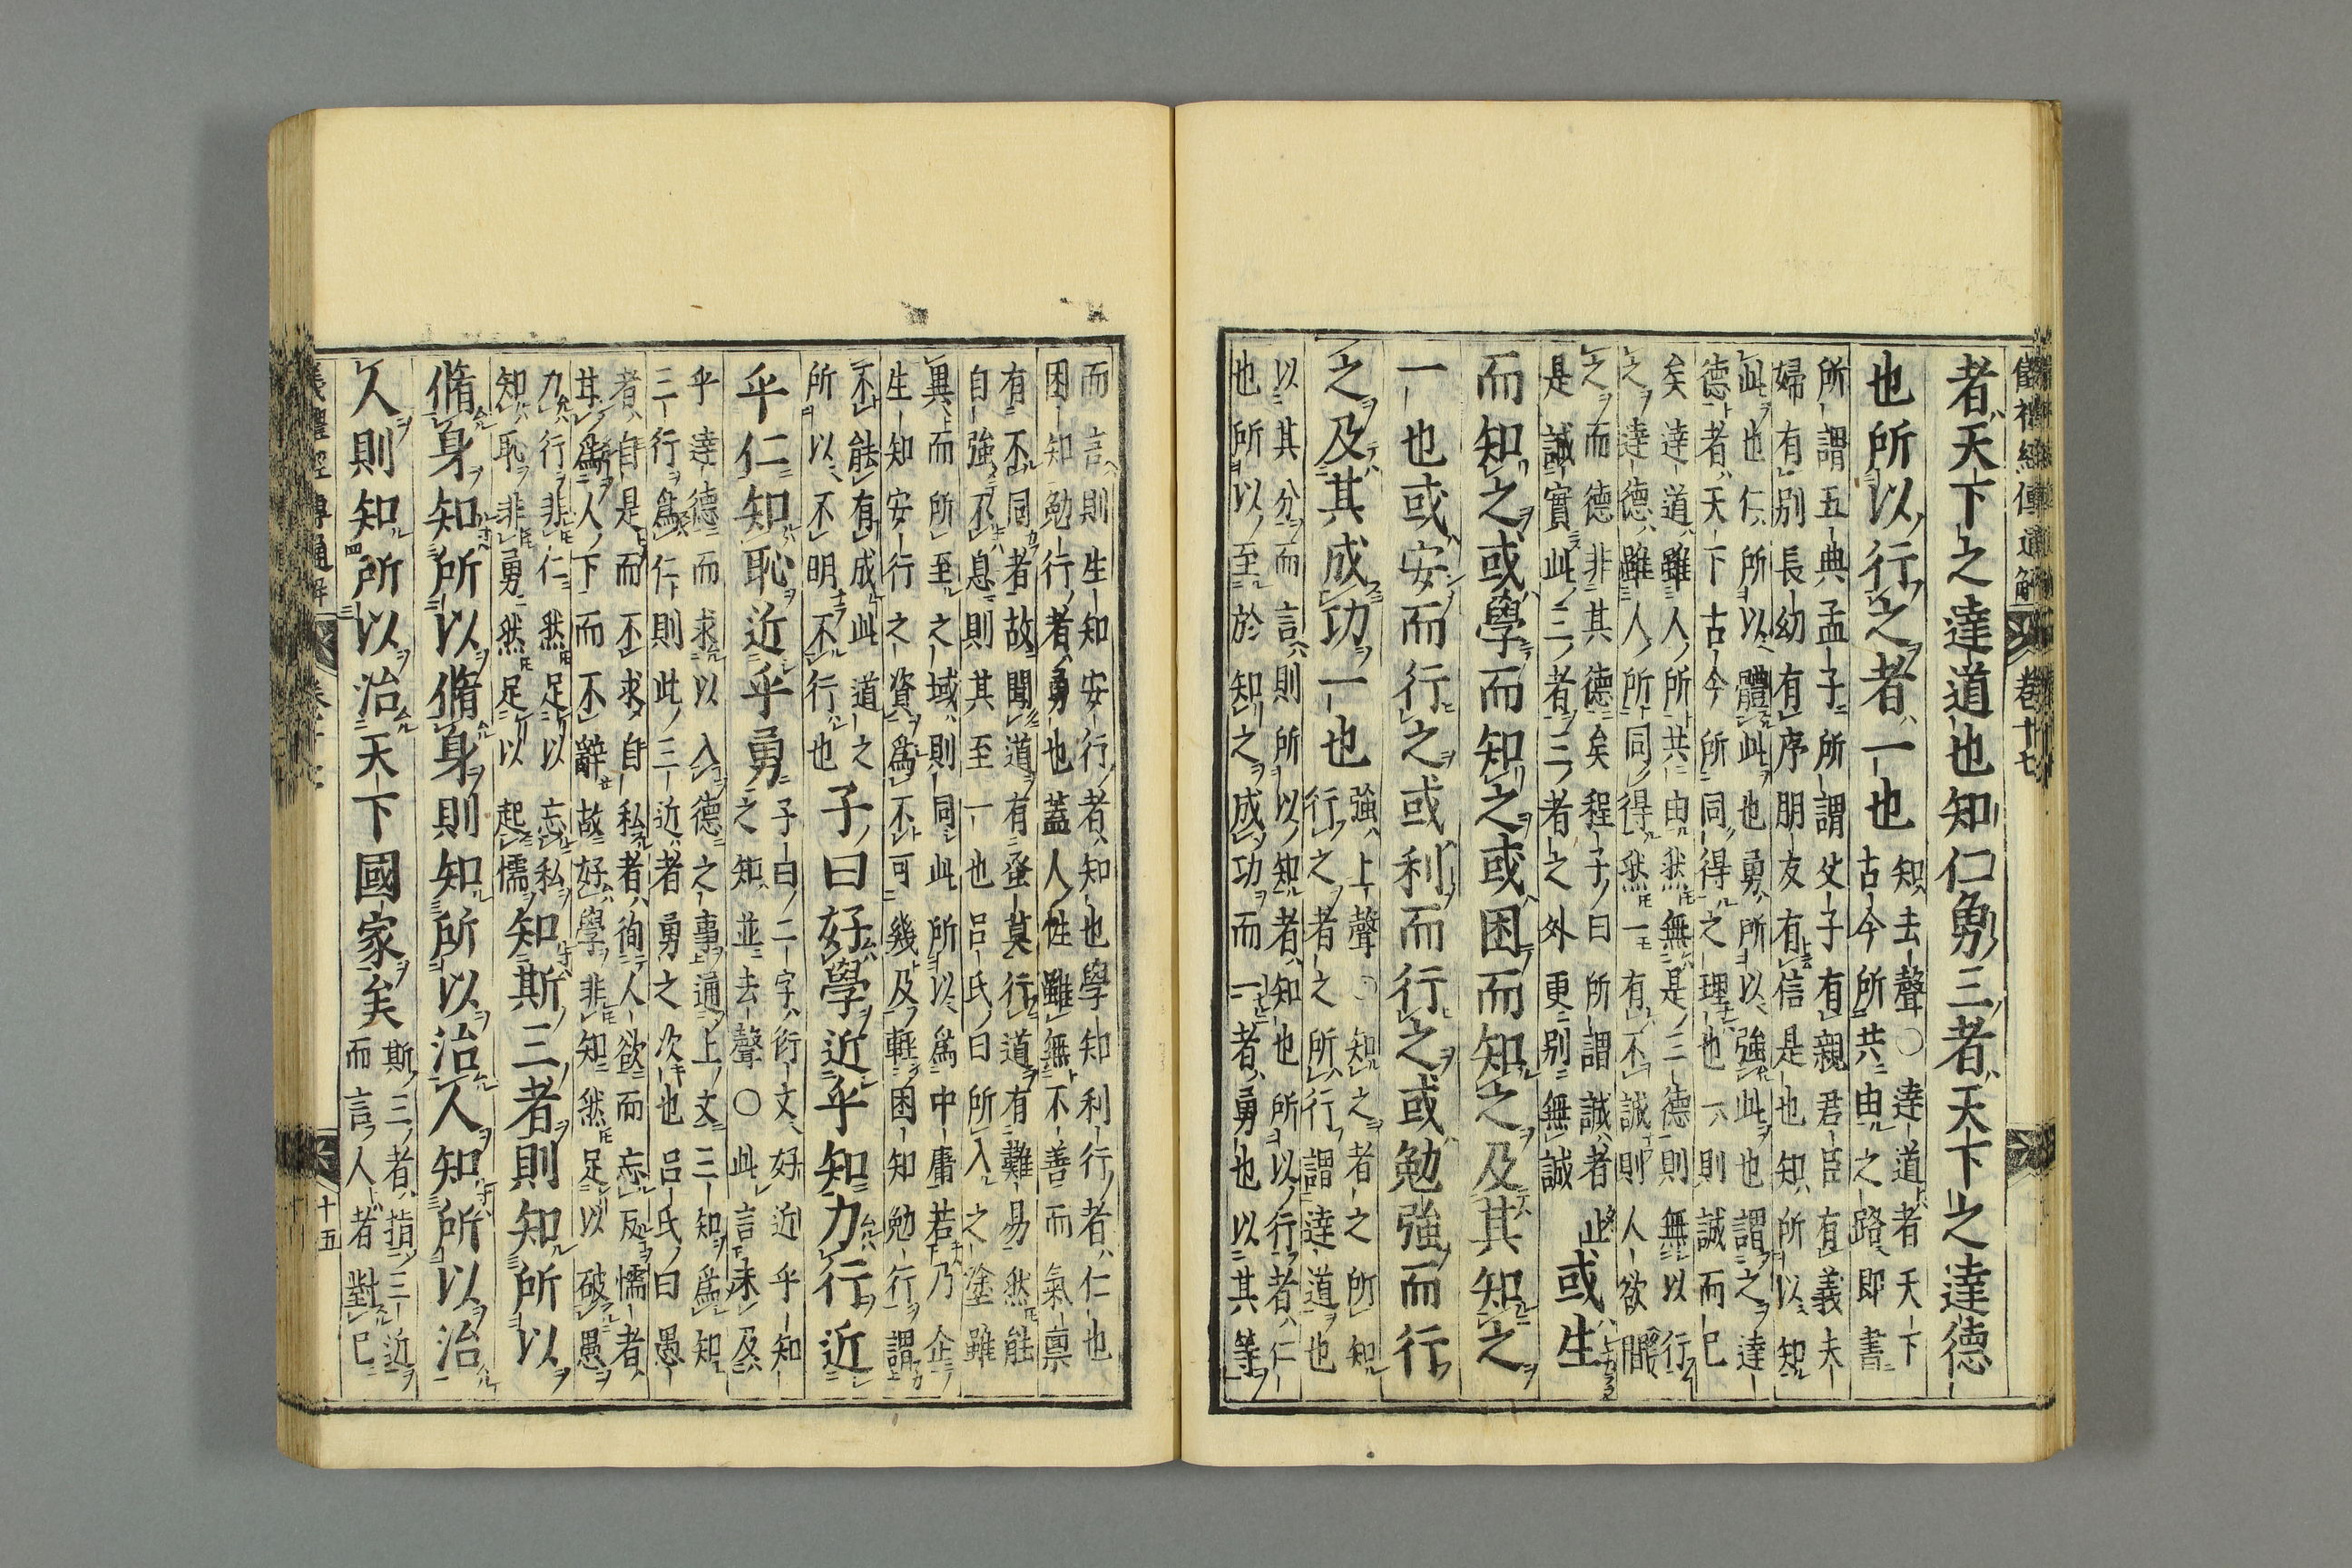 儀禮經傳通解 卷十七
者天下之達道也知仁勇三者天下之達德
也所以行之者一也
知去聲○達道者天下
古今所共由之路即書
所謂五典孟子所謂父子有親君臣有義夫
婦有別長幼有序朋友有信是也知所以知
此也仁所以體此也勇所以強此也謂之達
德者天下古今所同得之理也一則誠而已
矣達道雖人所共由然無是三德則無以行
之達德雖人所同得然一有不誠則人欲間
之而德非其德矣程子曰所謂誠者止
是誠實此三者三者之外更別無誠
或生
而知之或學而知之或困而知之及其知之
一也或安而行之或利而行之或勉強而行
之及其成功一也
強上聲○知之者之所知
行之者之所行謂達道也
以其分而言則所以知者知也所以行者仁
也所以至於知之成功而一者勇也以其等
而言則生知安行者知也學知利行者仁也
困知勉行者勇也蓋人性雖無不善而氣稟
有不同者故聞道有蚤莫行道有難易然能
自強不息則其至一也呂氏曰所入之塗雖
異而所至之域則同此所以為中庸若乃企
生知安行之資為不可幾及輕困知勉行謂
不能有成此道之
所以不明不行也
子曰好學近乎知力行近
乎仁知恥近乎勇
子曰二字衍文好近乎知
之知並去聲○此言未及
乎達德而求以入德之事通上文三知為知
三行為仁則此三近者勇之次也呂氏曰愚
者自是而不求自私者徇人欲而忘反懦者
甘為人下而不辭故好學非知然足以破愚
力行非仁然足以忘私
知恥非勇然足以起懦
知斯三者則知所以
脩身知所以脩身則知所以治人知所以治
人則知所以治天下國家矣
斯三者指三近
而言人者對已
儀禮經傳通解 十五